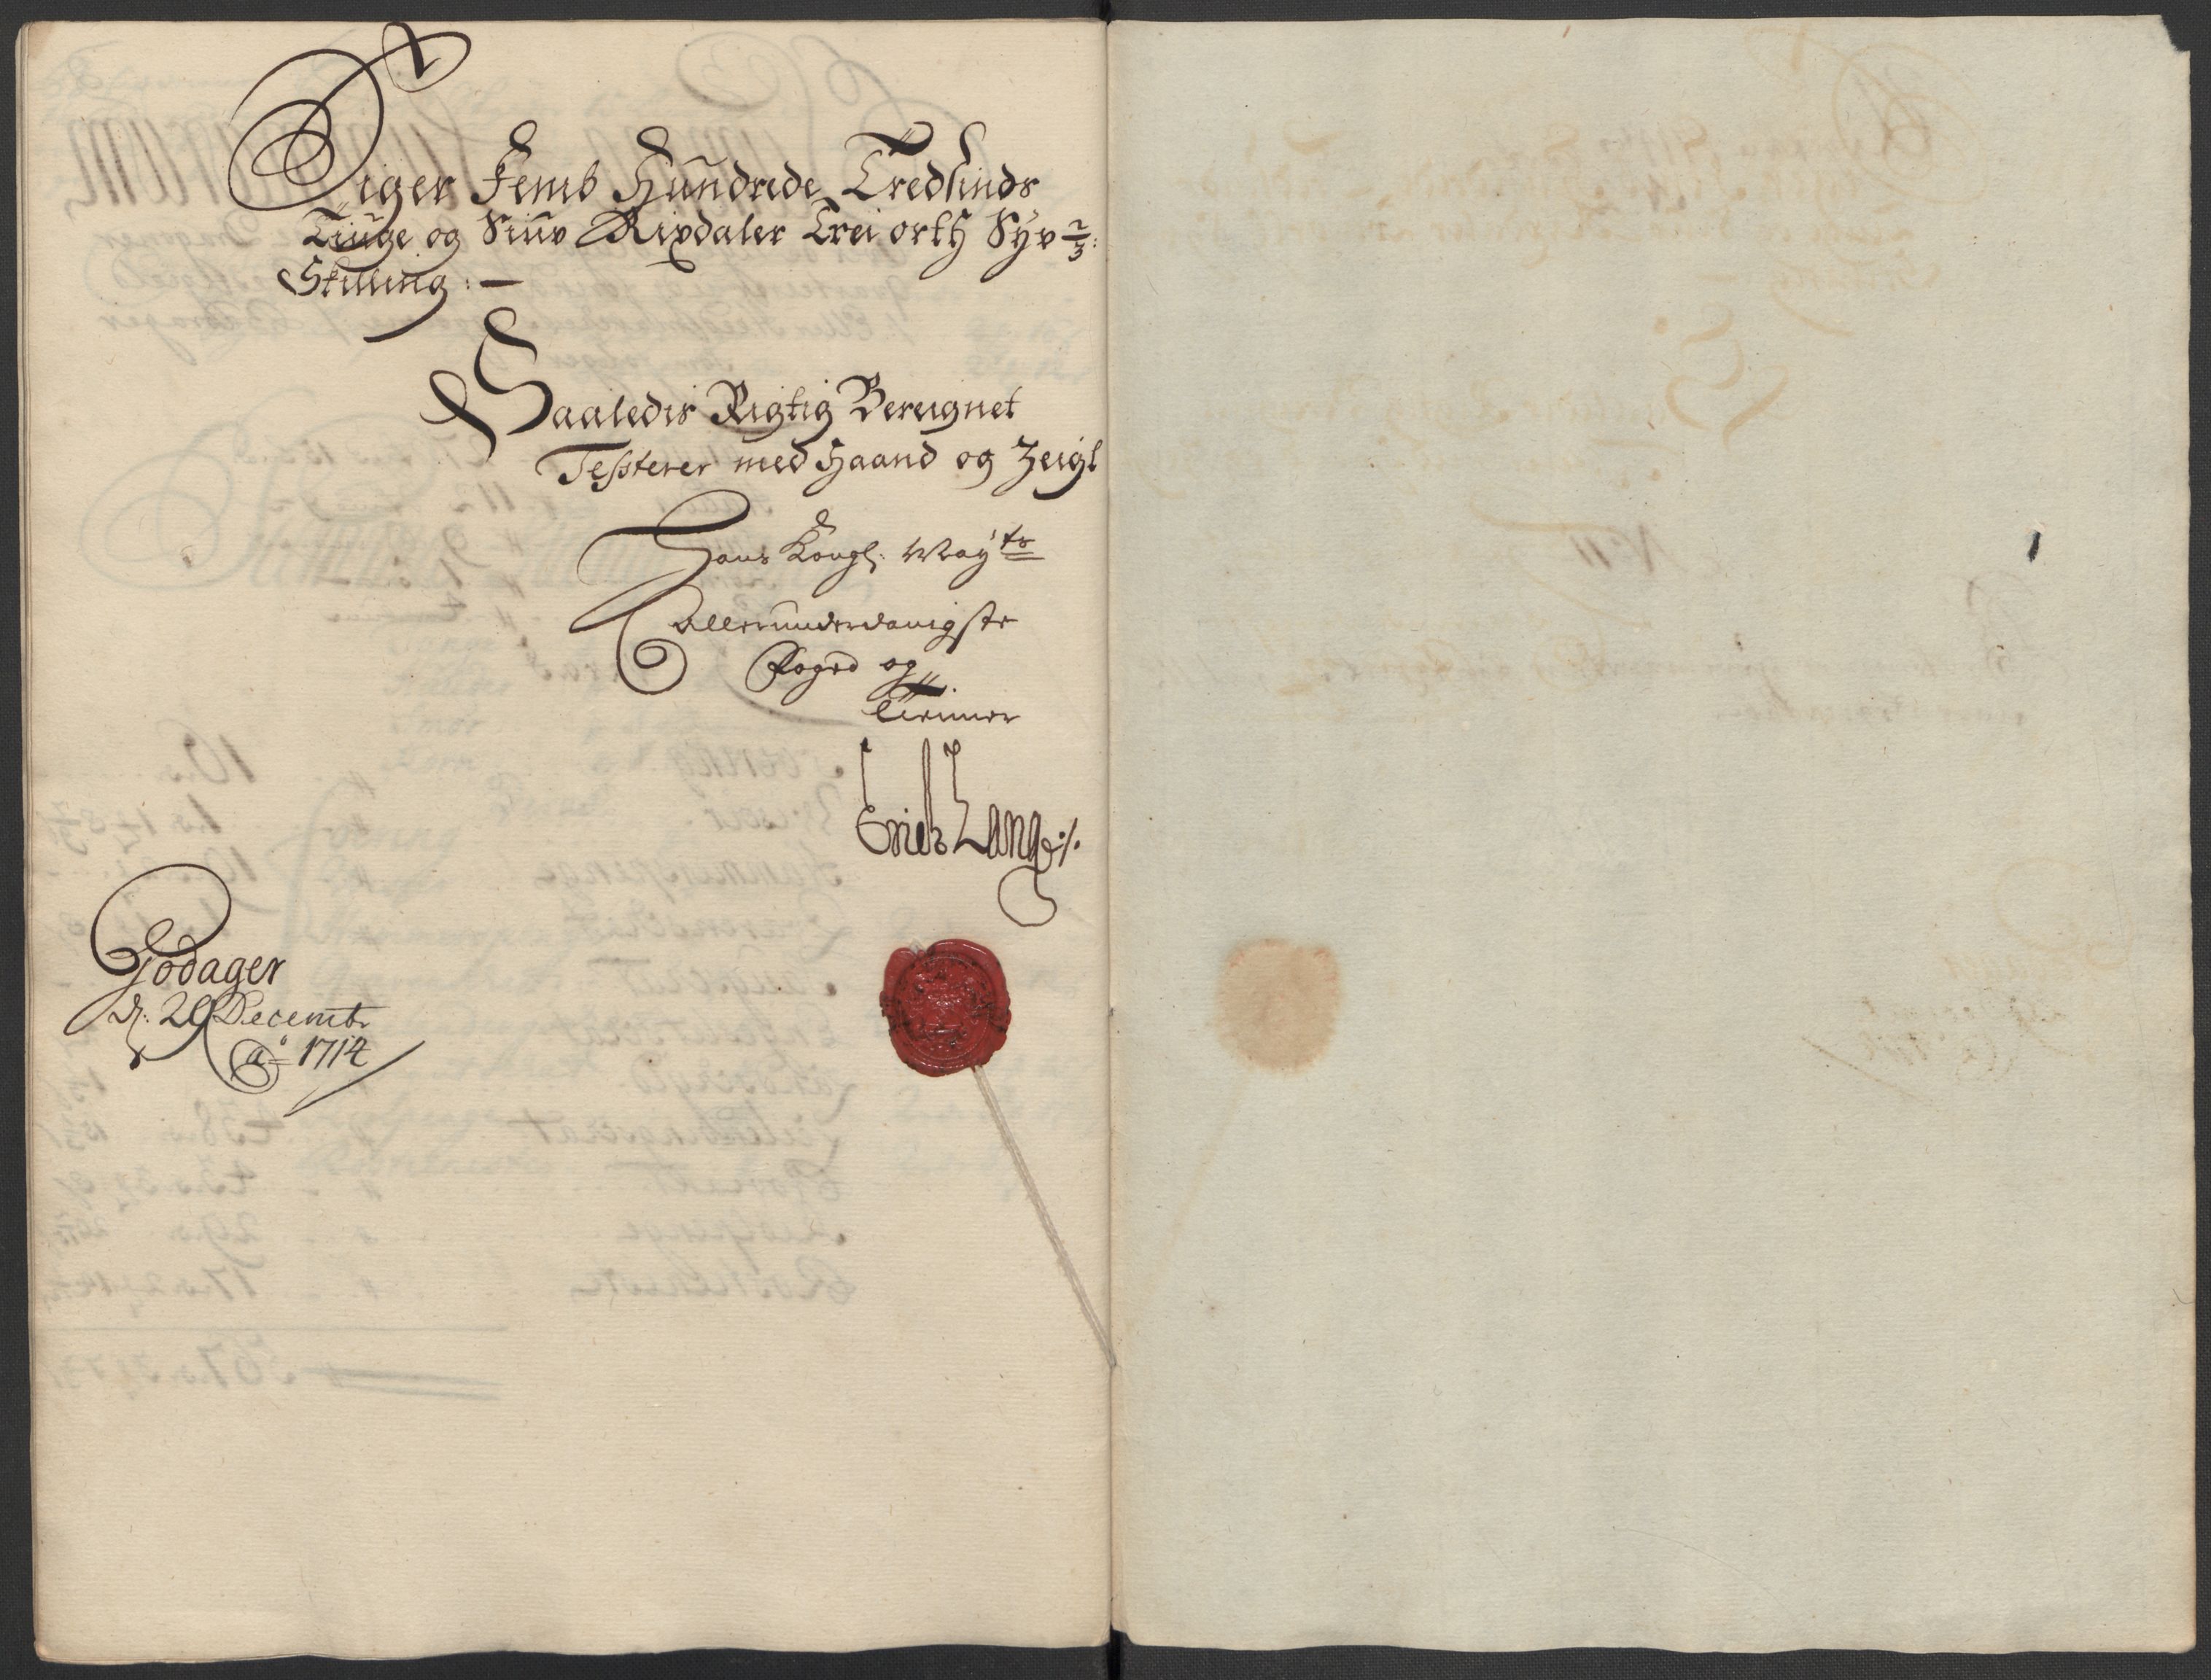 Siger Femb Hundrede Tredsinds
Tiuge og Siuv Rixdaler Trei orth Syv 2/3:
Skilling: —
Saaledis Rigtig Bereignet
Testerer med Haand og Zeigl
Hans Kongl: May:ts
allerunderdanigste
Foged og
Tienner
Erich Lange ./.
Godager
d: 29 Decembr
Ao 1714